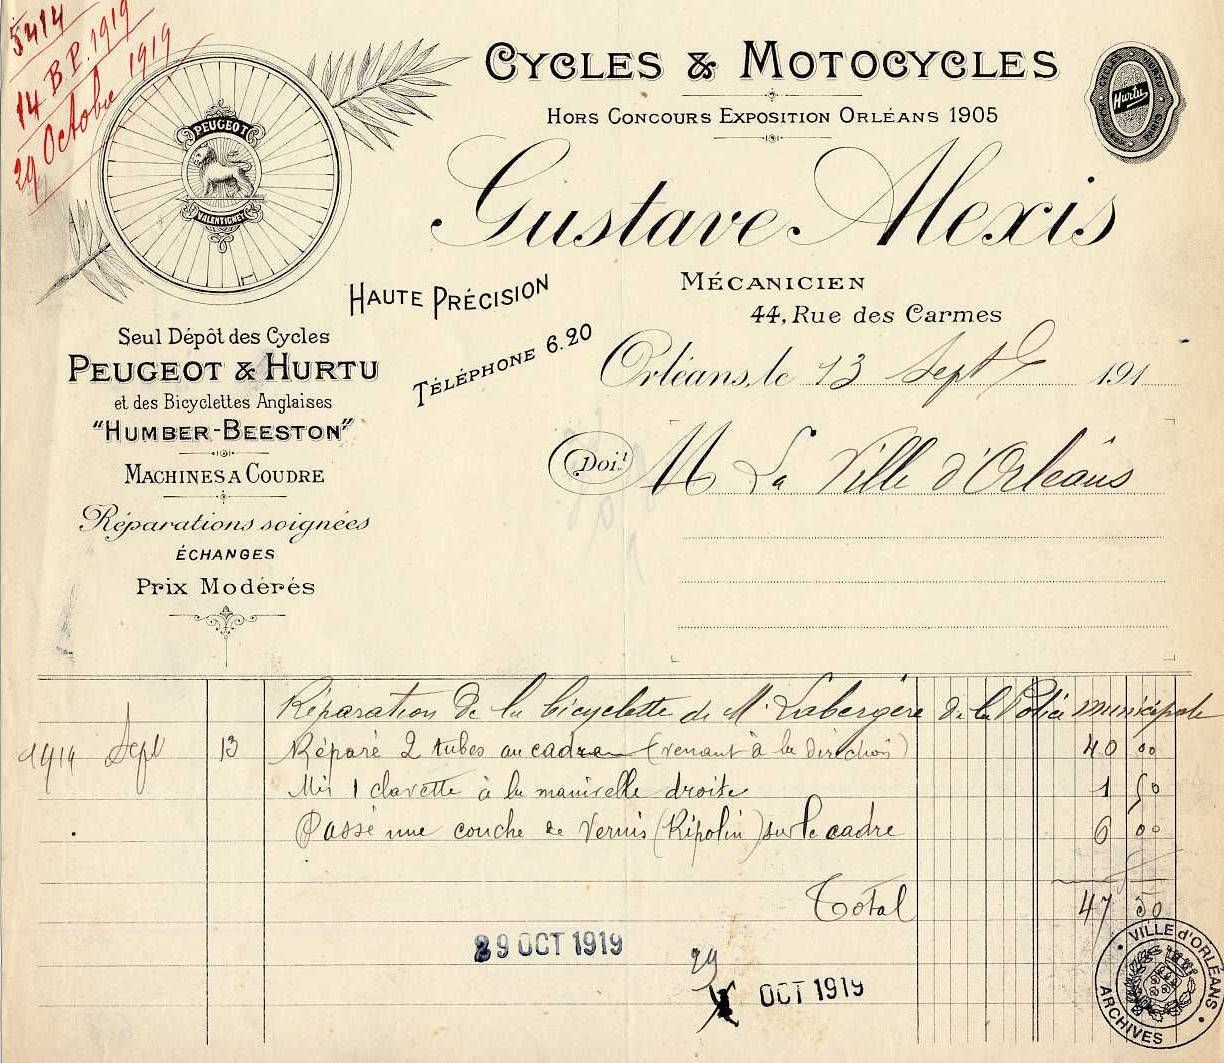 5414
14 B.P. 1919
29 Octobre 1919
PEUGEOT
VALENTIGNEY
CYCLES & MOTOCYCLES
HORS CONCOURS EXPOSITION ORLÉANS 1905
Hurtu
Gustave Alexis
HAUTE PRÉCISION
MÉCANICIEN
44, Rue des Carmes
TÉLÉPHONE 6.20
Orléans, le 13 Sept 191
Seul Dépôt des Cycles
PEUGEOT & HURTU
et des Bicyclettes Anglaises
"HUMBER-BEESTON"
MACHINES A COUDRE
Réparations soignées
ÉCHANGES
Prix Modérés
Doit M La Ville d'Orléans
Réparation de la bicyclette de Mr Labergère de la Police municipale
1919 Sept 13 Réparé 2 tubes au cadre (venant à la direction) 40 00
Mis 1 clavette à la manivelle droite 1 50
Passé une couche de Vernis (Ripolin) sur le cadre 6 00
Total 47 50
29 OCT 1919
29
OCT 1919
VILLE d'ORLÉANS
ARCHIVES